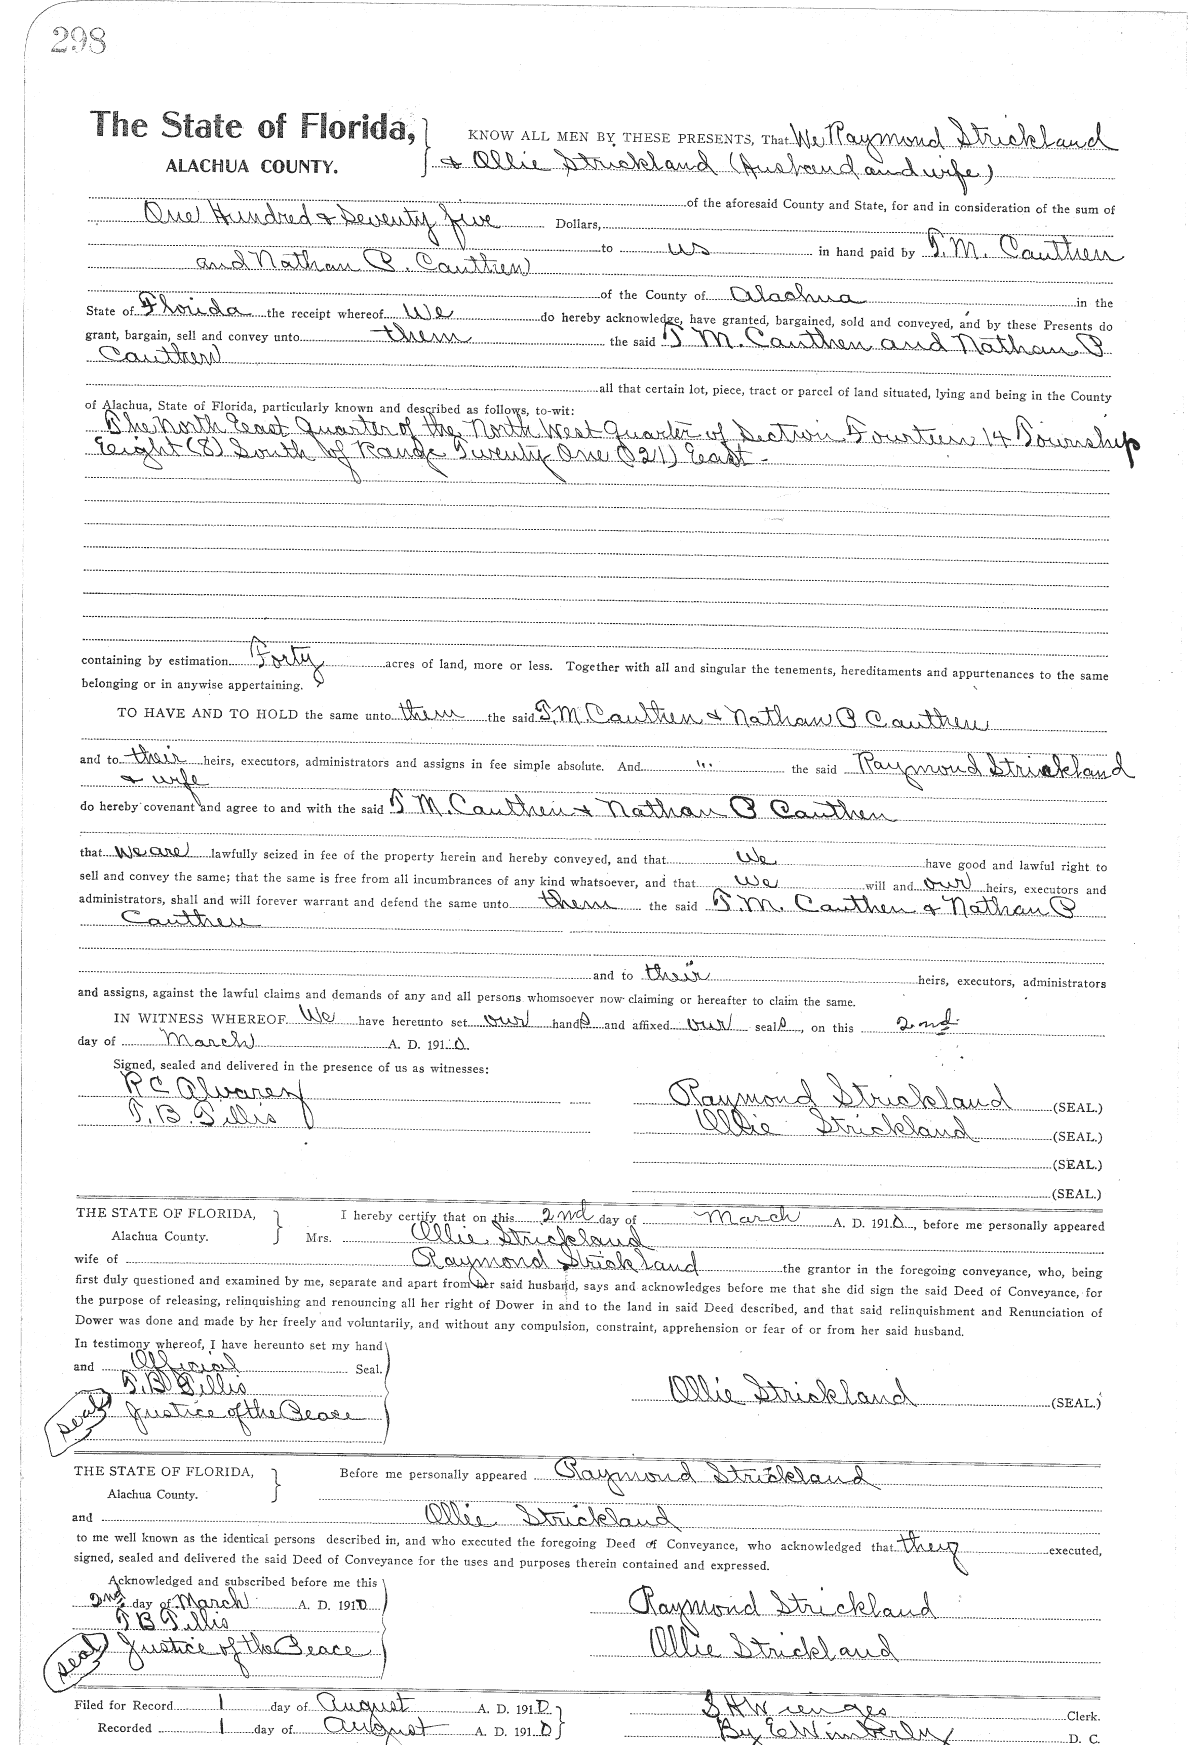 298
The State of Florida,
ALACHUA COUNTY.
KNOW ALL MEN BY THESE PRESENTS, That We Raymond Strickland
& Ollie Strickland (Husband and wife)
of the aforesaid County and State, for and in consideration of the sum of
One Hundred & Seventy five Dollars,
to us in hand paid by T. M. Cauthen
and Nathan P. Cauthen
of the County of Alachua in the
State of Florida the receipt whereof We do hereby acknowledge, have granted, bargained, sold and conveyed, and by these Presents do
grant, bargain, sell and convey unto them the said T M. Cauthen and Nathan P
Cauthen
all that certain lot, piece, tract or parcel of land situated, lying and being in the County
of Alachua, State of Florida, particularly known and described as follows, to-wit:
The North East Quarter of the North West Quarter of Section Fourteen 14 Township
Eight (8) South of Range Twenty One (21) East -
containing by estimation Forty acres of land, more or less. Together with all and singular the tenements, hereditaments and appurtenances to the same
belonging or in anywise appertaining.
TO HAVE AND TO HOLD the same unto them the said T. M. Cauthen & Nathan P Cauthen
and to their heirs, executors, administrators and assigns in fee simple absolute. And " the said Raymond Strickland
& wife
do hereby covenant and agree to and with the said T M. Cauthen & Nathan P Cauthen
that we are lawfully seized in fee of the property herein and hereby conveyed, and that We have good and lawful right to
sell and convey the same; that the same is free from all incumbrances of any kind whatsoever, and that we will and our heirs, executors and
administrators, shall and will forever warrant and defend the same unto them the said T. M. Cauthen & Nathan P
Cauthen
and to their heirs, executors, administrators
and assigns, against the lawful claims and demands of any and all persons whomsoever now claiming or hereafter to claim the same.
IN WITNESS WHEREOF We have hereunto set our hands and affixed our seals, on this 2nd
day of March A. D. 1910.
Signed, sealed and delivered in the presence of us as witnesses:
R C Alvarez
T. B. Tillis
Raymond Strickland (SEAL.)
Ollie Strickland (SEAL.)
(SEAL.)
(SEAL.)
THE STATE OF FLORIDA,
Alachua County.
I hereby certify that on this 2nd day of March A. D. 1910, before me personally appeared
Mrs. Ollie Strickland
wife of Raymond Strickland the grantor in the foregoing conveyance, who, being
first duly questioned and examined by me, separate and apart from her said husband, says and acknowledges before me that she did sign the said Deed of Conveyance, for
the purpose of releasing, relinquishing and renouncing all her right of Dower in and to the land in said Deed described, and that said relinquishment and Renunciation of
Dower was done and made by her freely and voluntarily, and without any compulsion, constraint, apprehension or fear of or from her said husband.
In testimony whereof, I have hereunto set my hand
and Official Seal.
T. B Tillis
Seal Justice of the Peace
Ollie Strickland (SEAL.)
THE STATE OF FLORIDA,
Alachua County.
Before me personally appeared Raymond Strickland
and Ollie Strickland
to me well known as the identical persons described in, and who executed the foregoing Deed of Conveyance, who acknowledged that they executed,
signed, sealed and delivered the said Deed of Conveyance for the uses and purposes therein contained and expressed.
Acknowledged and subscribed before me this
2nd day of March A. D. 1910
T B Tillis
Seal Justice of the Peace
Raymond Strickland
Ollie Strickland
Filed for Record 1 day of August A. D. 1910
Recorded 1 day of August A. D. 1910
S H Wienges Clerk.
By E Wimberly D. C.